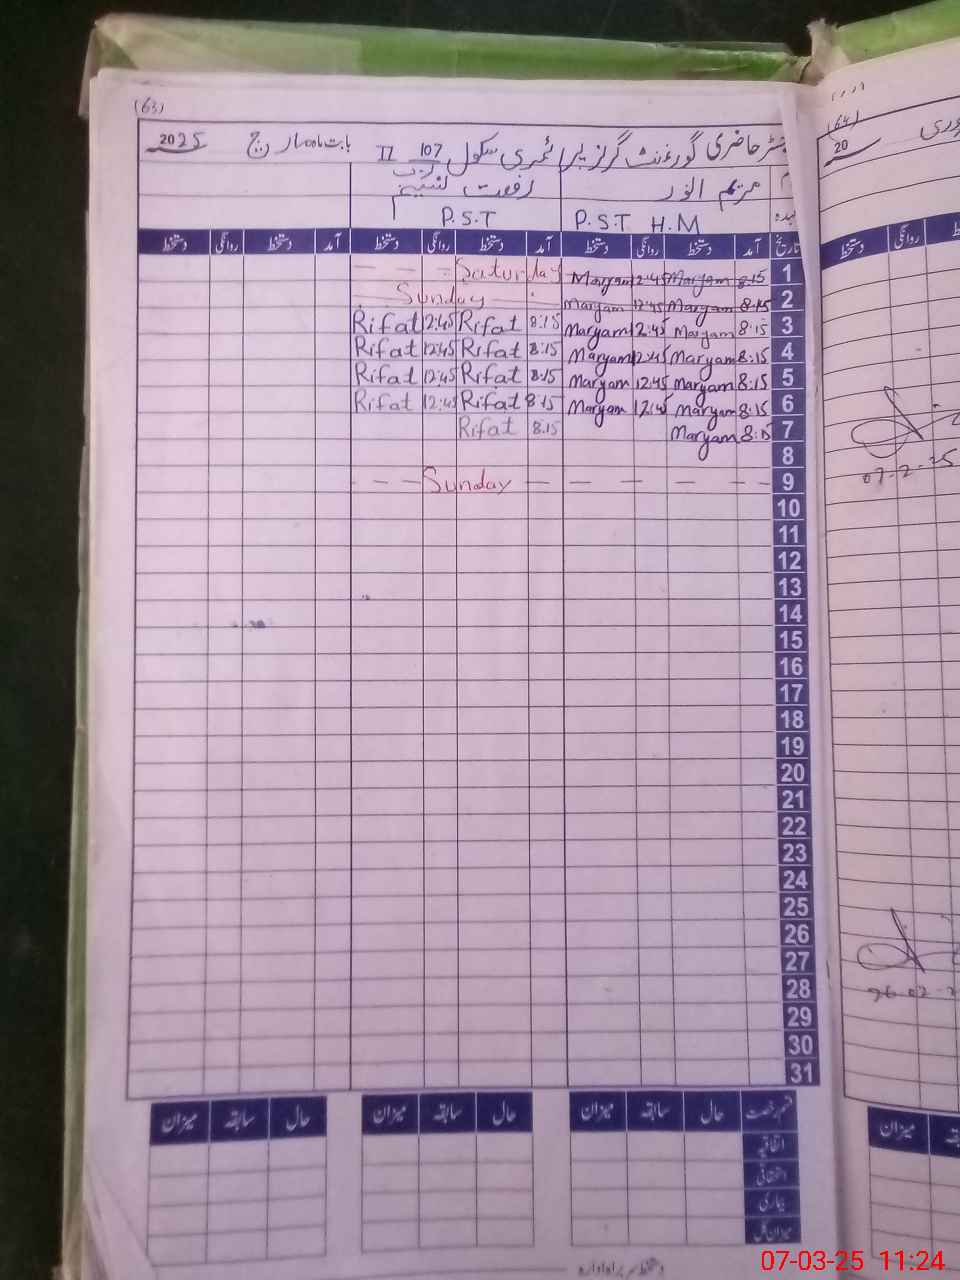 (63)
رجسٹر حاضری گورنمنٹ گرلز پرائمری سکول 107 II بابت ماہ مارچ 2025
مریم انور رفعت نسیم
P.S.T H.M P.S.T
تاریخ آمد دستخط روانگی دستخط آمد دستخط روانگی دستخط آمد دستخط روانگی دستخط
1 8:15 Maryam 12:45 Maryam Saturday
2 8:15 Maryam 12:45 Maryam Sunday
3 8:15 Maryam 12:45 Maryam 8:15 Rifat 12:45 Rifat
4 8:15 Maryam 12:45 Maryam 8:15 Rifat 12:45 Rifat
5 8:15 Maryam 12:45 Maryam 8:15 Rifat 12:45 Rifat
6 8:15 Maryam 12:45 Maryam 8:15 Rifat 12:45 Rifat
7 8:15 Maryam 8:15 Rifat
8
9 Sunday
10
11
12
13
14
15
16
17
18
19
20
21
22
23
24
25
26
27
28
29
30
31
قسم رخصت حال سابقہ میزان حال سابقہ میزان حال سابقہ میزان
اتفاقیہ
استحقاقی
بیماری
میزان کل
دستخط سربراہ ادارہ
(64)
20
روانگی دستخط
07-2-25
26-02-2
میزان
07-03-25 11:24